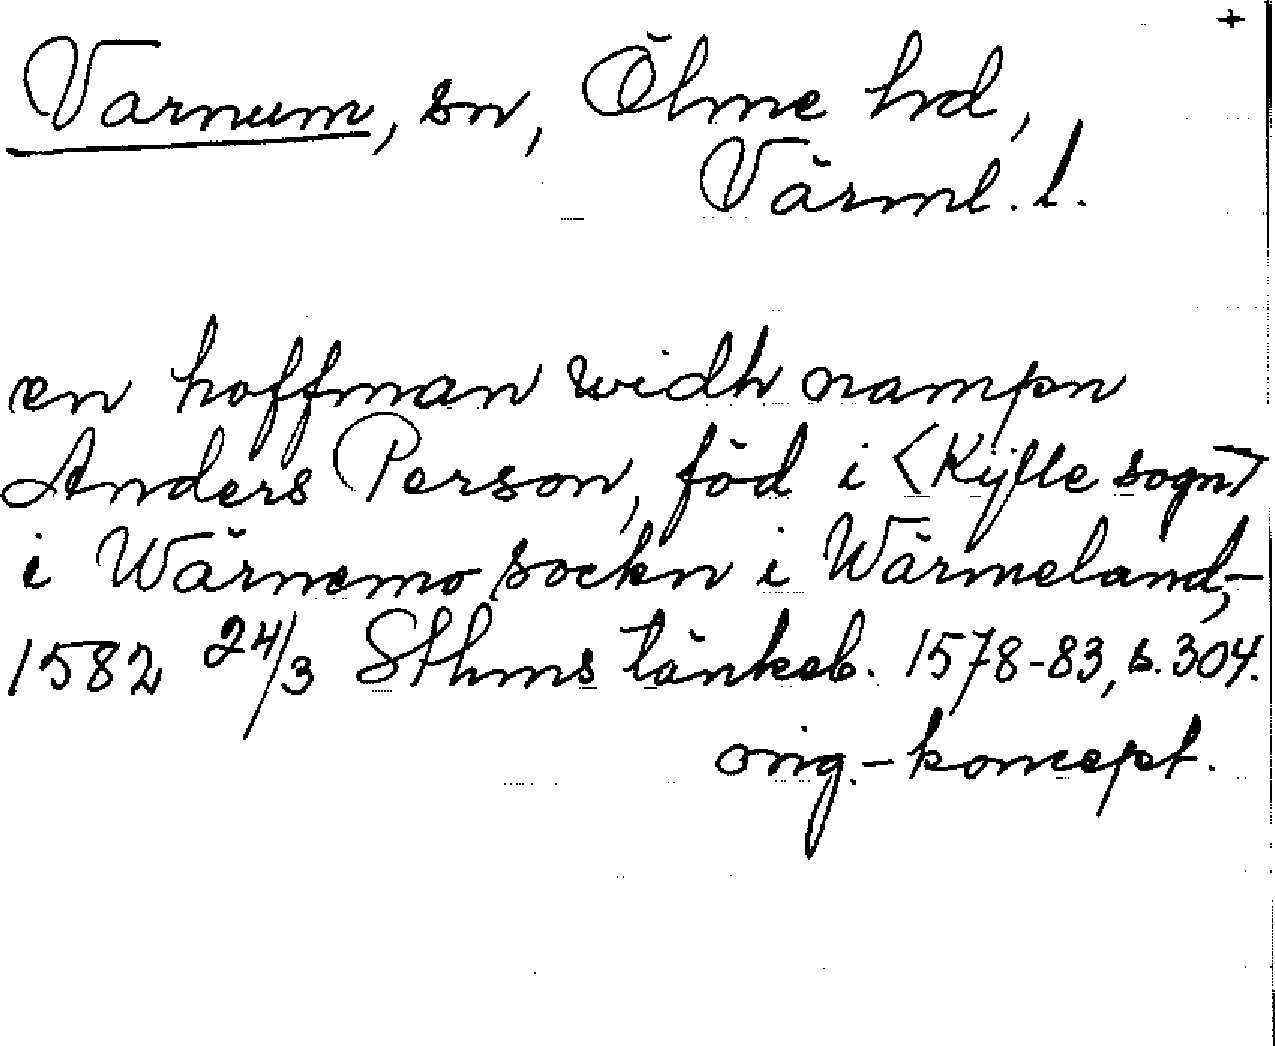 +
Varnum, sn, Ölme hd,
Värml. l.
en hoffman widh nampn
Anders Person, föd i <Kÿlle sogn>
i Wärnemo sockn i Wärmeland,-
1582 24/3 Sthms tänkeb. 1578-83, s. 304.
orig.-koncept.